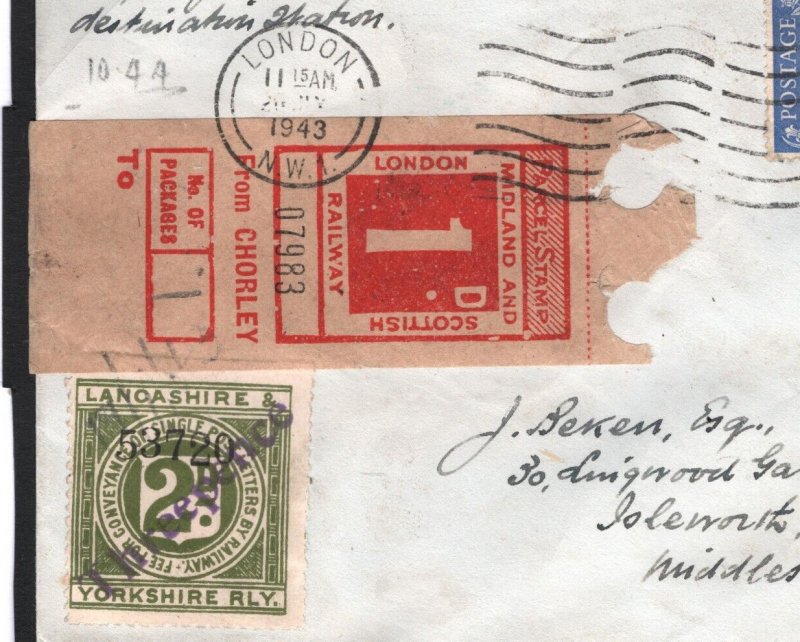 destination Station.
10.44
LONDON
11 15AM
1943
N.W.1.
POSTAGE
To
No. OF PACKAGES
1
From CHORLEY
07983
LONDON
MIDLAND AND
SCOTTISH
RAILWAY
1D
PARCEL STAMP
LANCASHIRE &
53720
FEE FOR CONVEYANCE OF SINGLE POST LETTERS BY RAILWAY
2d.
Threepence
YORKSHIRE RLY.
J. Beken, Esq.,
30, Lingwood Ga
Isleworth,
Middles